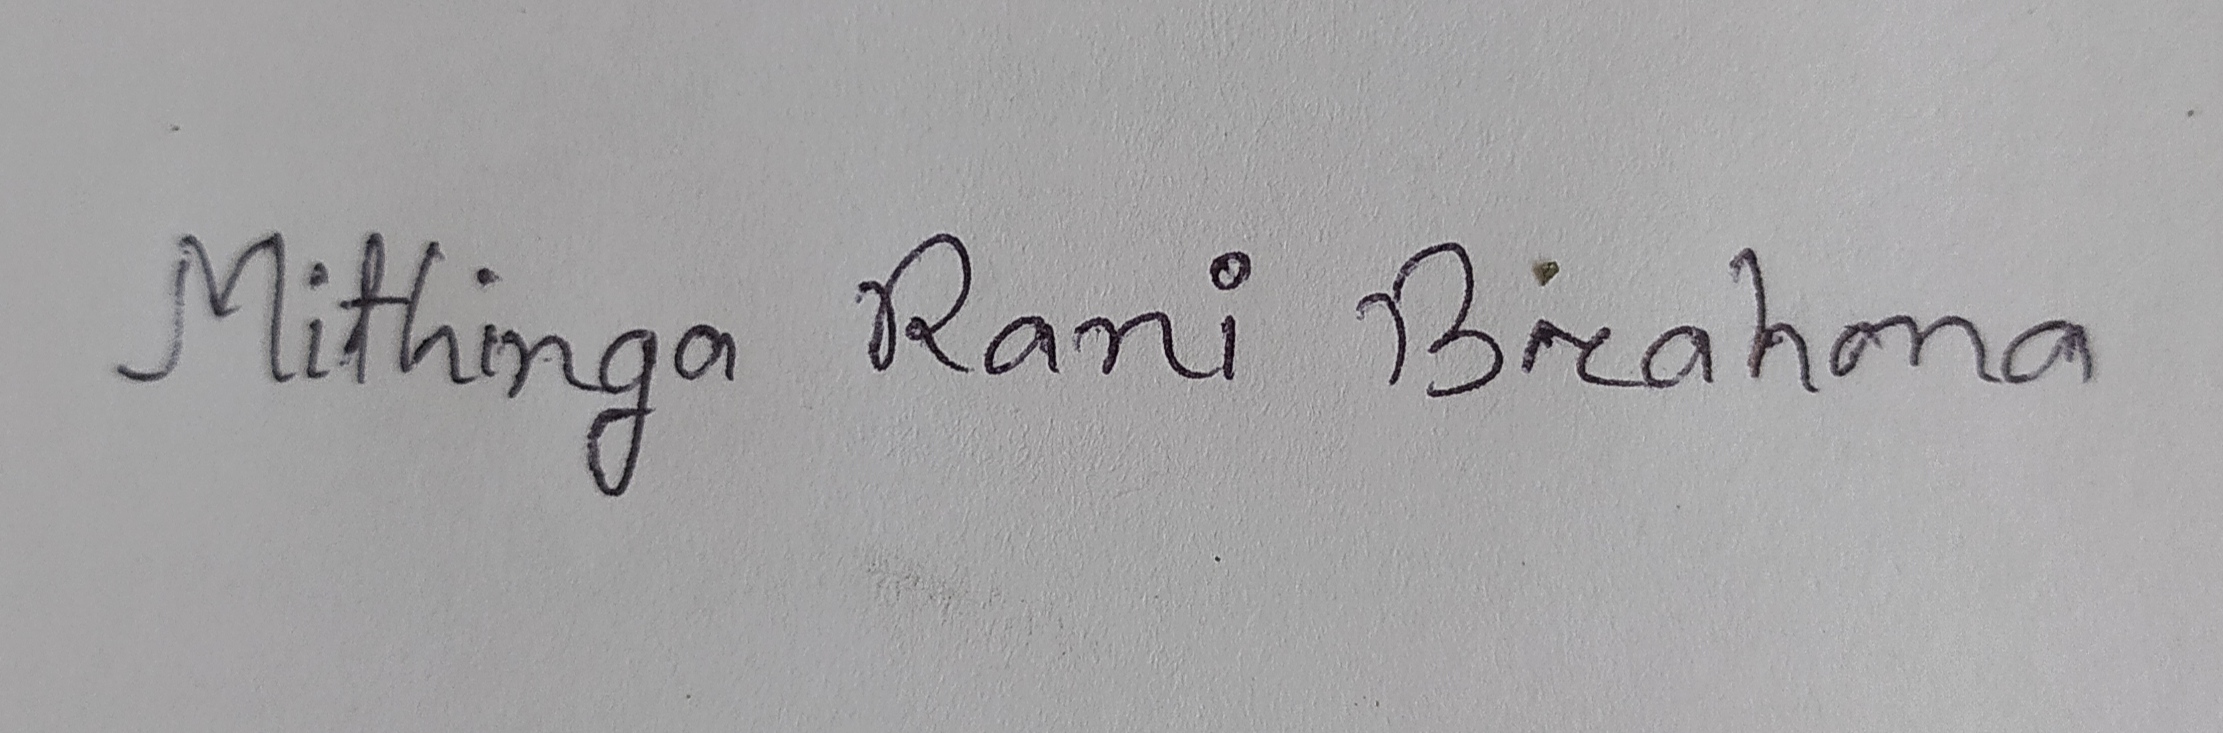 Mithinga Rani Brahma